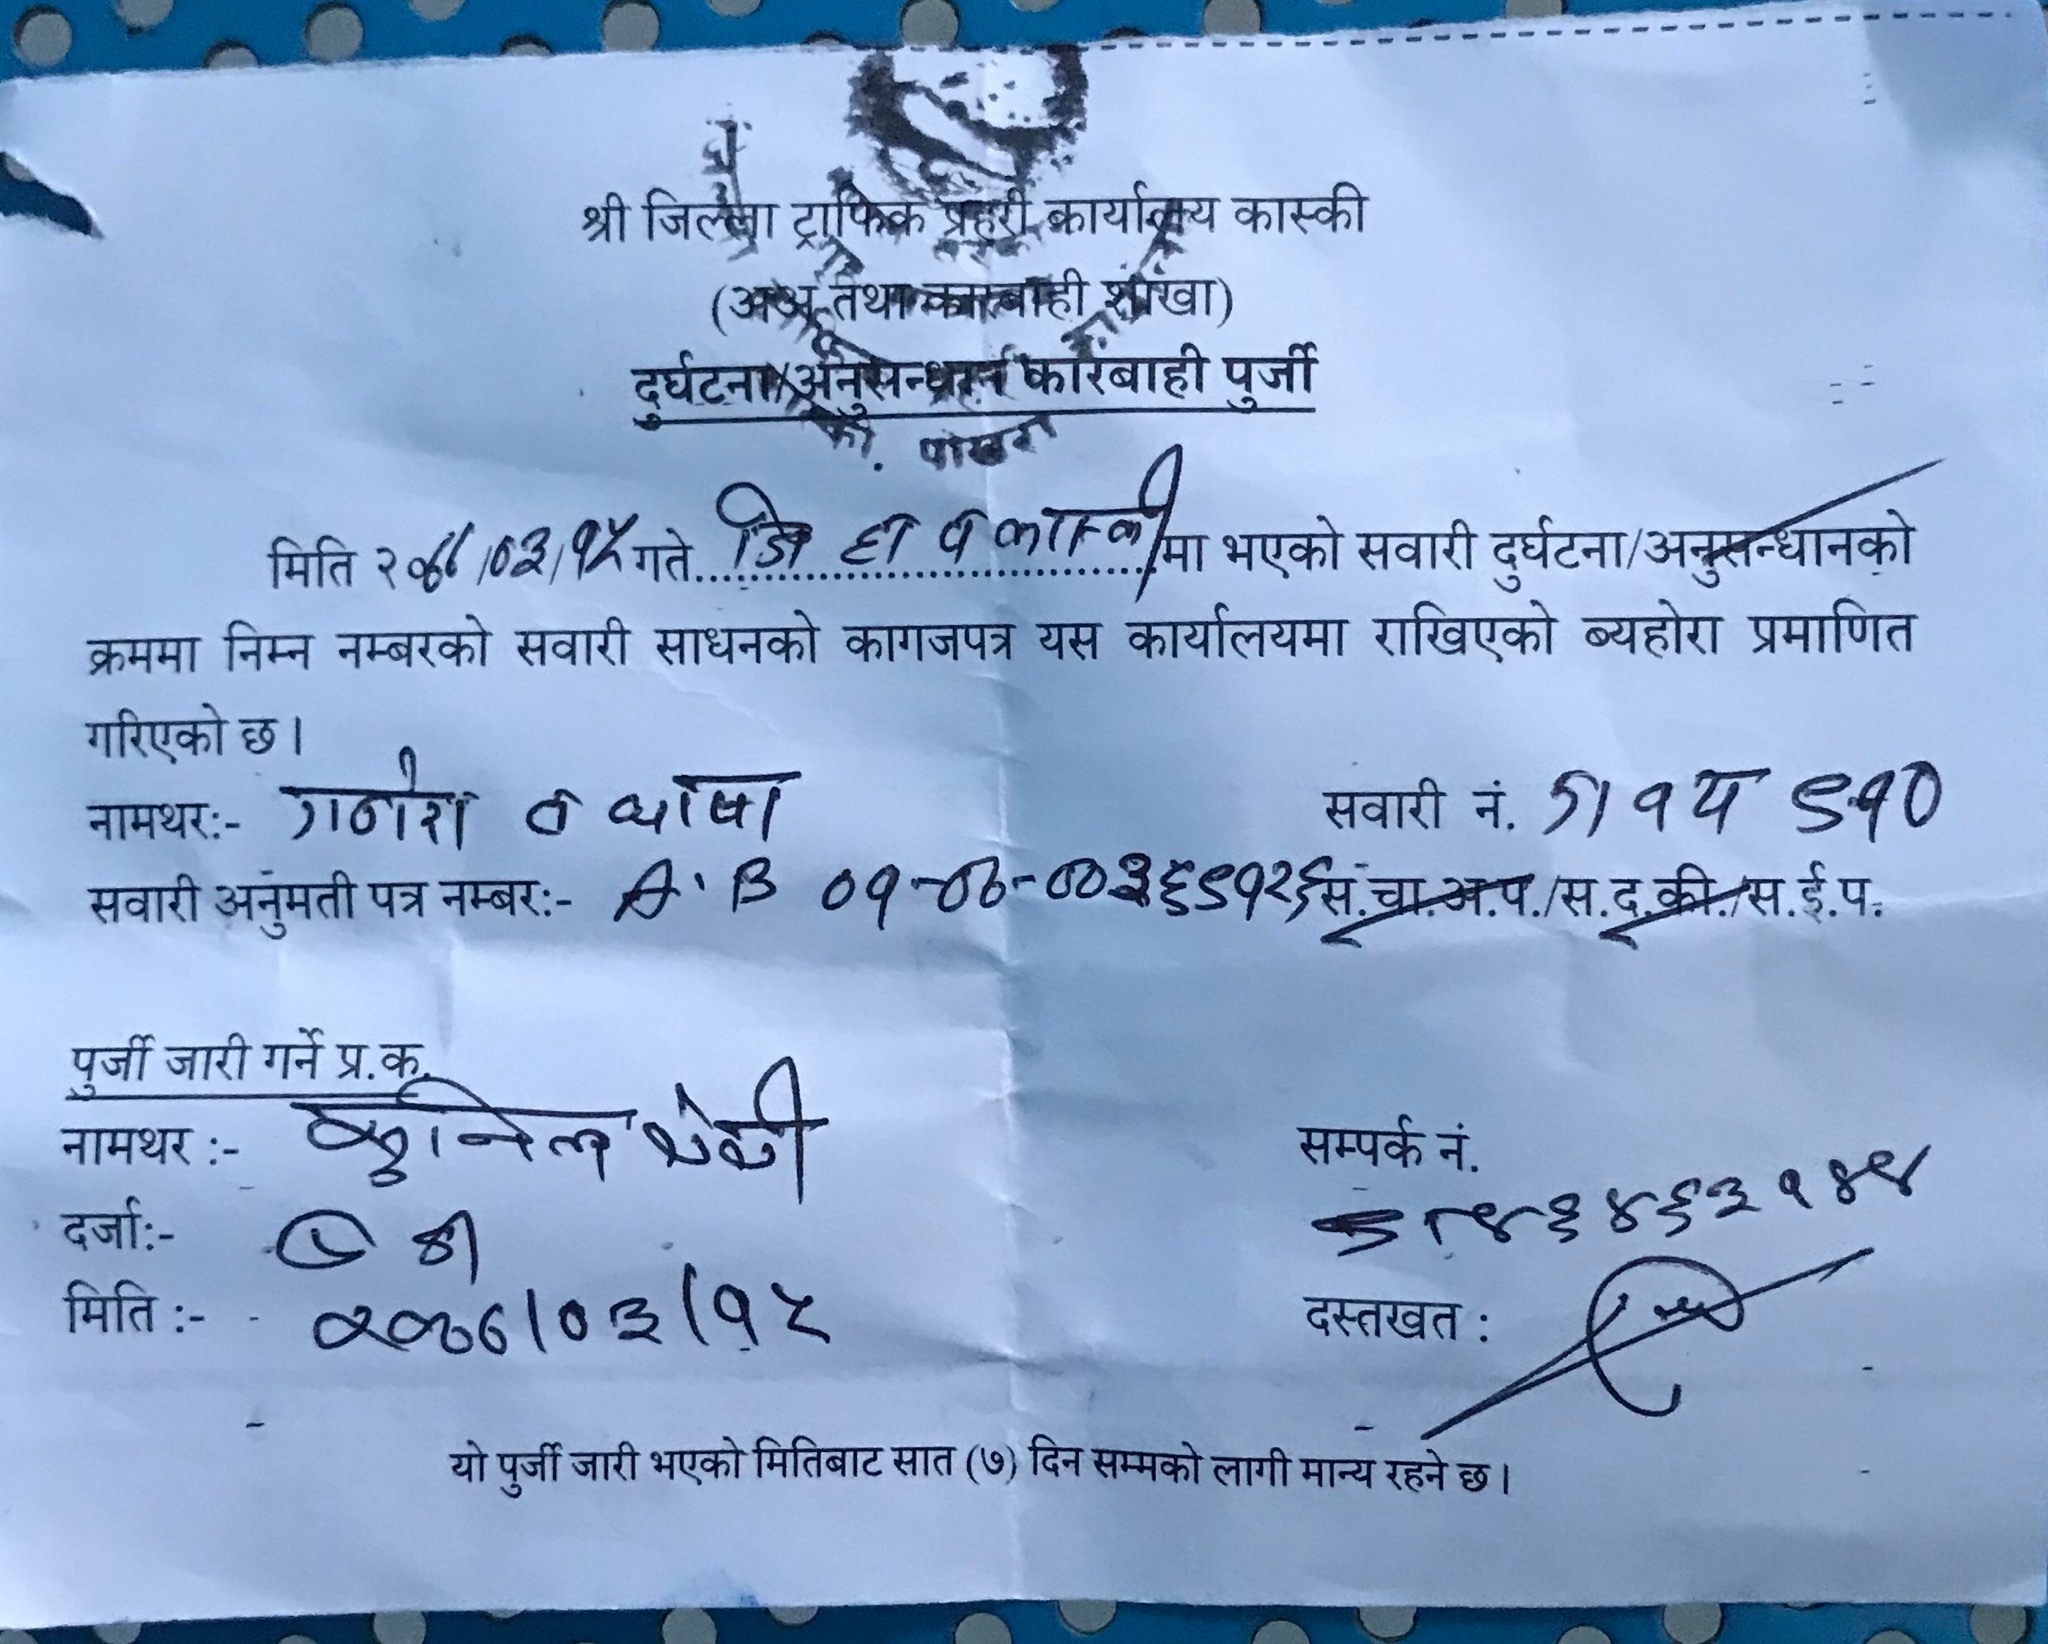 श्री जिल्ला ट्राफिक प्रहरी कार्यालय कास्की
(अ.अ. तथा कारबाही शाखा)
दुर्घटना/अनुसन्धान कारबाही पुर्जी
पोखरा
मिति २०७७/०३/१५ गते मा भएको सवारी दुर्घटना/अनुसन्धानको
क्रममा निम्न नम्बरको सवारी साधनको कागजपत्र यस कार्यालयमा राखिएको ब्यहोरा प्रमाणित
गरिएको छ।
नामथर:- गणेश ब थापा सवारी नं. ग१प ९१०
सवारी अनुमती पत्र नम्बर:- A.B ०१-०७-००३६९१२६ स.चा.अ.प./स.द.की./स.ई.प.
पुर्जी जारी गर्ने प्र.क.
नामथर :- सम्पर्क नं.
दर्जा:-
मिति :- २०७७/०३/१५ दस्तखत :
यो पुर्जी जारी भएको मितिबाट सात (७) दिन सम्मको लागी मान्य रहने छ।